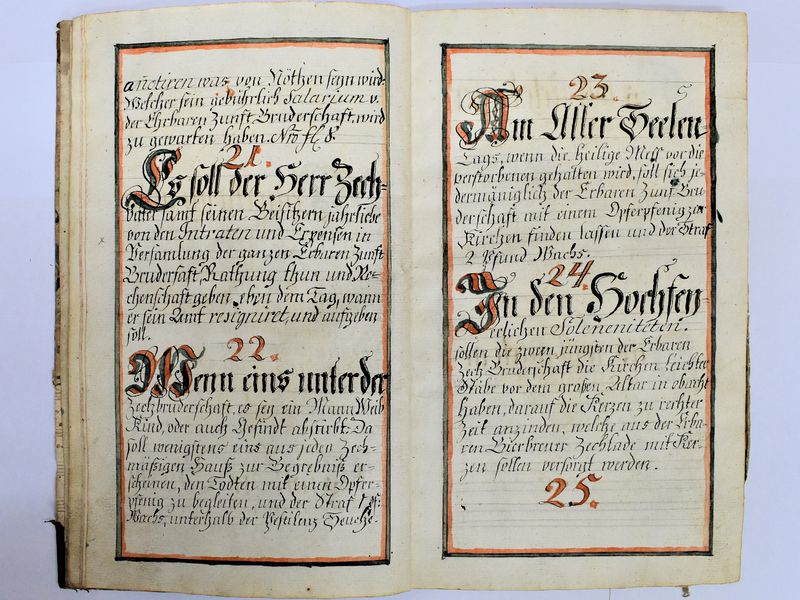 anotiren was von Nöthen seyn wird.
Welcher sein gebührlich Salarium v.
der Ehrbaren Zunft Bruderschaft, wird
zu gewarten haben. Nro fl. 8.
21.
Es soll der Herr Zech-
vater samt seinen Beisitzern jährliche
von den Intraten und Expensen in
Versamlung der ganzen Erbaren Zunft
Bruderschaft Rathung thun und Re-
chenschaft geben, eben dem Tag, wann
er sein Amt resigniret, und aufgeben
soll.
22.
Wenn eins unter der
Zechbruderschaft, es sey ein Mann Weib
Kind, oder auch Gesindt abstirbt: Da
soll wenigstens eins aus jeden Zech-
mäßigen Hauß zur Begrebniß er-
scheinen, den Todten mit einen Opfer-
pfenig zu begleiten, und der Straf 1
Wachs, unterhalb der Pestilenz Seuche.
23.
Am Aller Seelen
Tags, wenn die heilige Mess vor die
verstorbenen gehalten wird, soll sich je-
dermäniglich der Erbaren Zunf Bru-
derschaft mit einem Opferpfenig zer
Kirchen finden lassen und der Straf
2 Pfund Wachs.
24.
In den Hochfey-
erlichen Soleneniteten.
sollen die zween jüngsten der Erbaren
Zech Bruderschaft die Kirchen leichter
Stäbe vor dem großen Altar in obacht
haben, darauf die Kerzen zu rechter
Zeit anzünden, welche aus der Erba-
ren Bierbreuer Zechlade mit Ker-
zen sollen versorgt werden.
25.